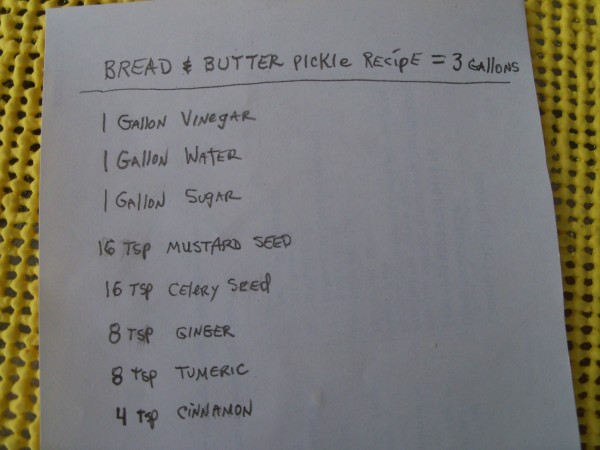 BREAD & BUTTER PICKLE RECIPE = 3 GALLONS
1 GALLON VINEGAR
1 GALLON WATER
1 GALLON SUGAR
16 TSP MUSTARD SEED
16 TSP CELERY SEED
8 TSP GINGER
8 TSP TUMERIC
4 TSP CINNAMON